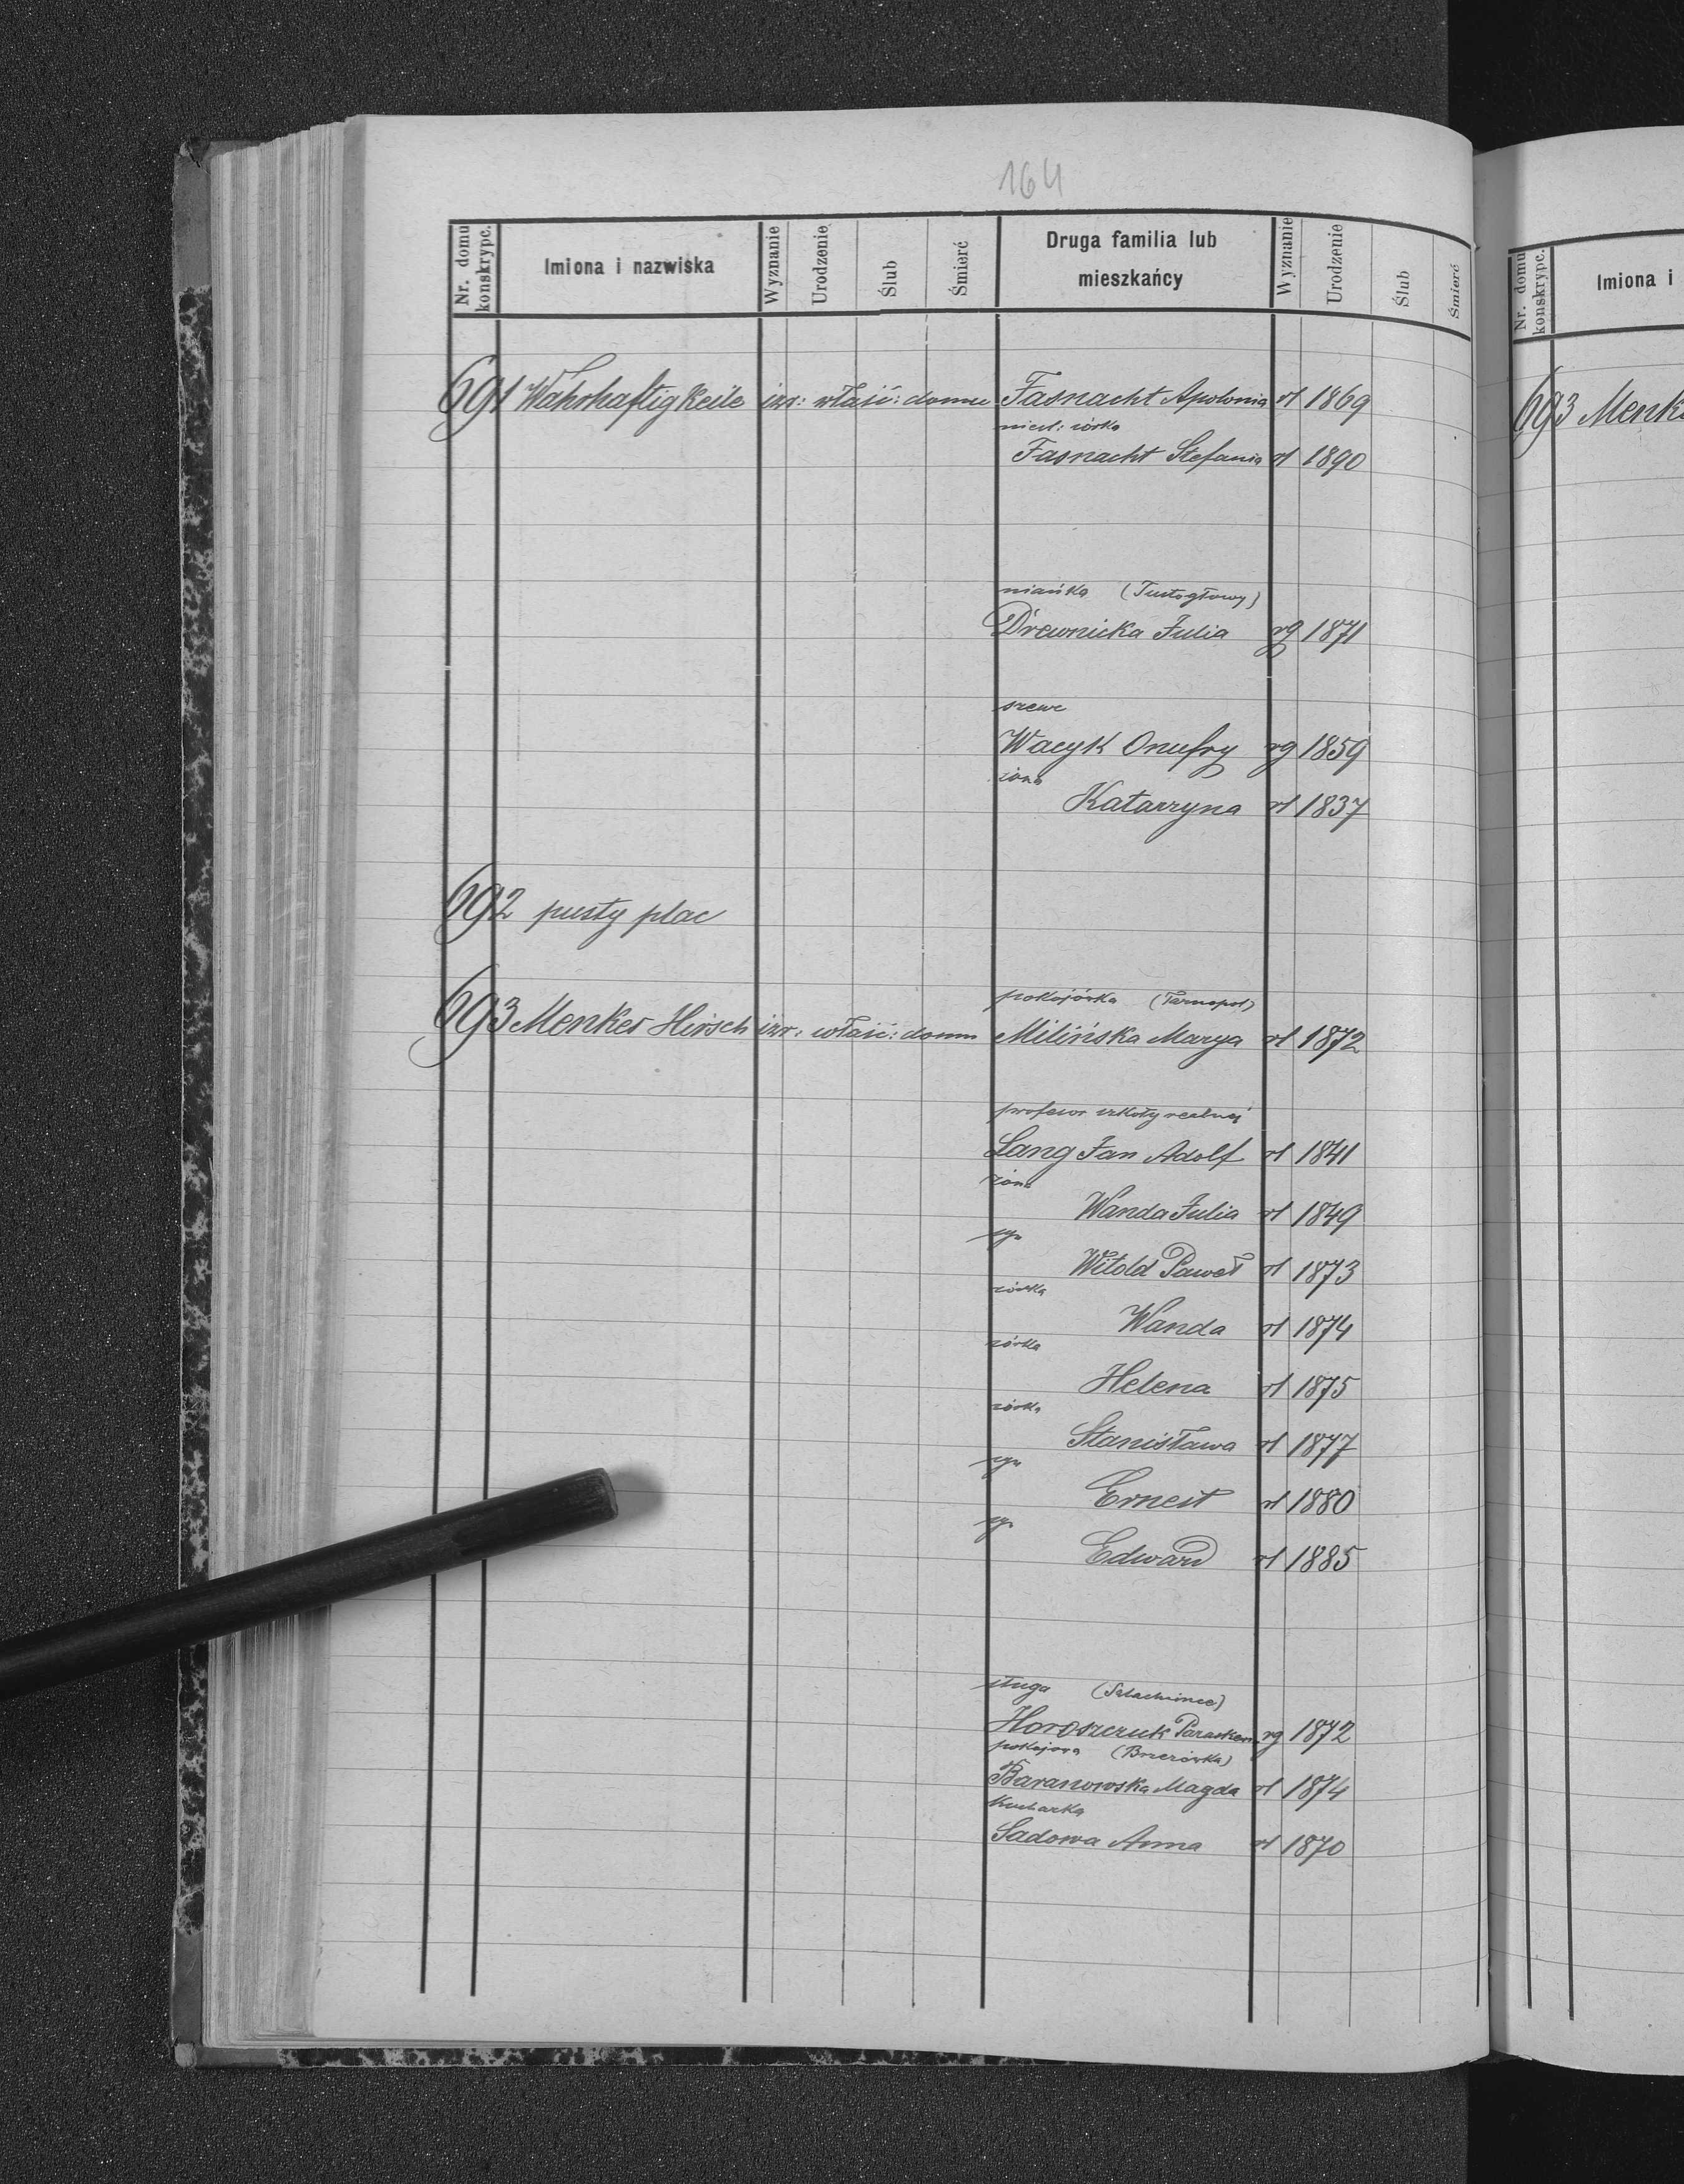 164
Nr. domu konskrypc. Imiona i nazwiska Wyznanie Urodzenie Ślub Śmierć Druga familia lub mieszkańcy Wyznanie Urodzenie Ślub Śmierć
691 Wahrhaftig Keile izr: właść: domu Fasnacht Apolonia rł 1869
nieśl: córka
Fasnacht Stefania rł 1890
niańka (Tustogłowy)
Drewnicka Julia rg 1871
szewc
Wacyk Onufry rg 1859
żona
Katarzyna rł 1837
692 pusty plac
pokojówka (Tarnopol)
693 Menkes Hirsch izr: właść: domu Milińska Marya rł 1872
profesor szkoły realnej
Lang Jan Adolf rł 1841
żona
Wanda Julia rł 1849
syn
Witold Paweł rł 1873
córka
Wanda rł 1874
córka
Helena rł 1875
córka
Stanisława rł 1877
syn
Ernest rł 1880
syn
Edward rł 1885
sługa (Szlachcince)
Horoszczuk rg 1872
pokojowa (Brzezówka)
Baranowska Magda rł 1874
Kucharka
Sadowa Anna rł 1870
Nr. domu konskrypc. Imiona i
693 Menk